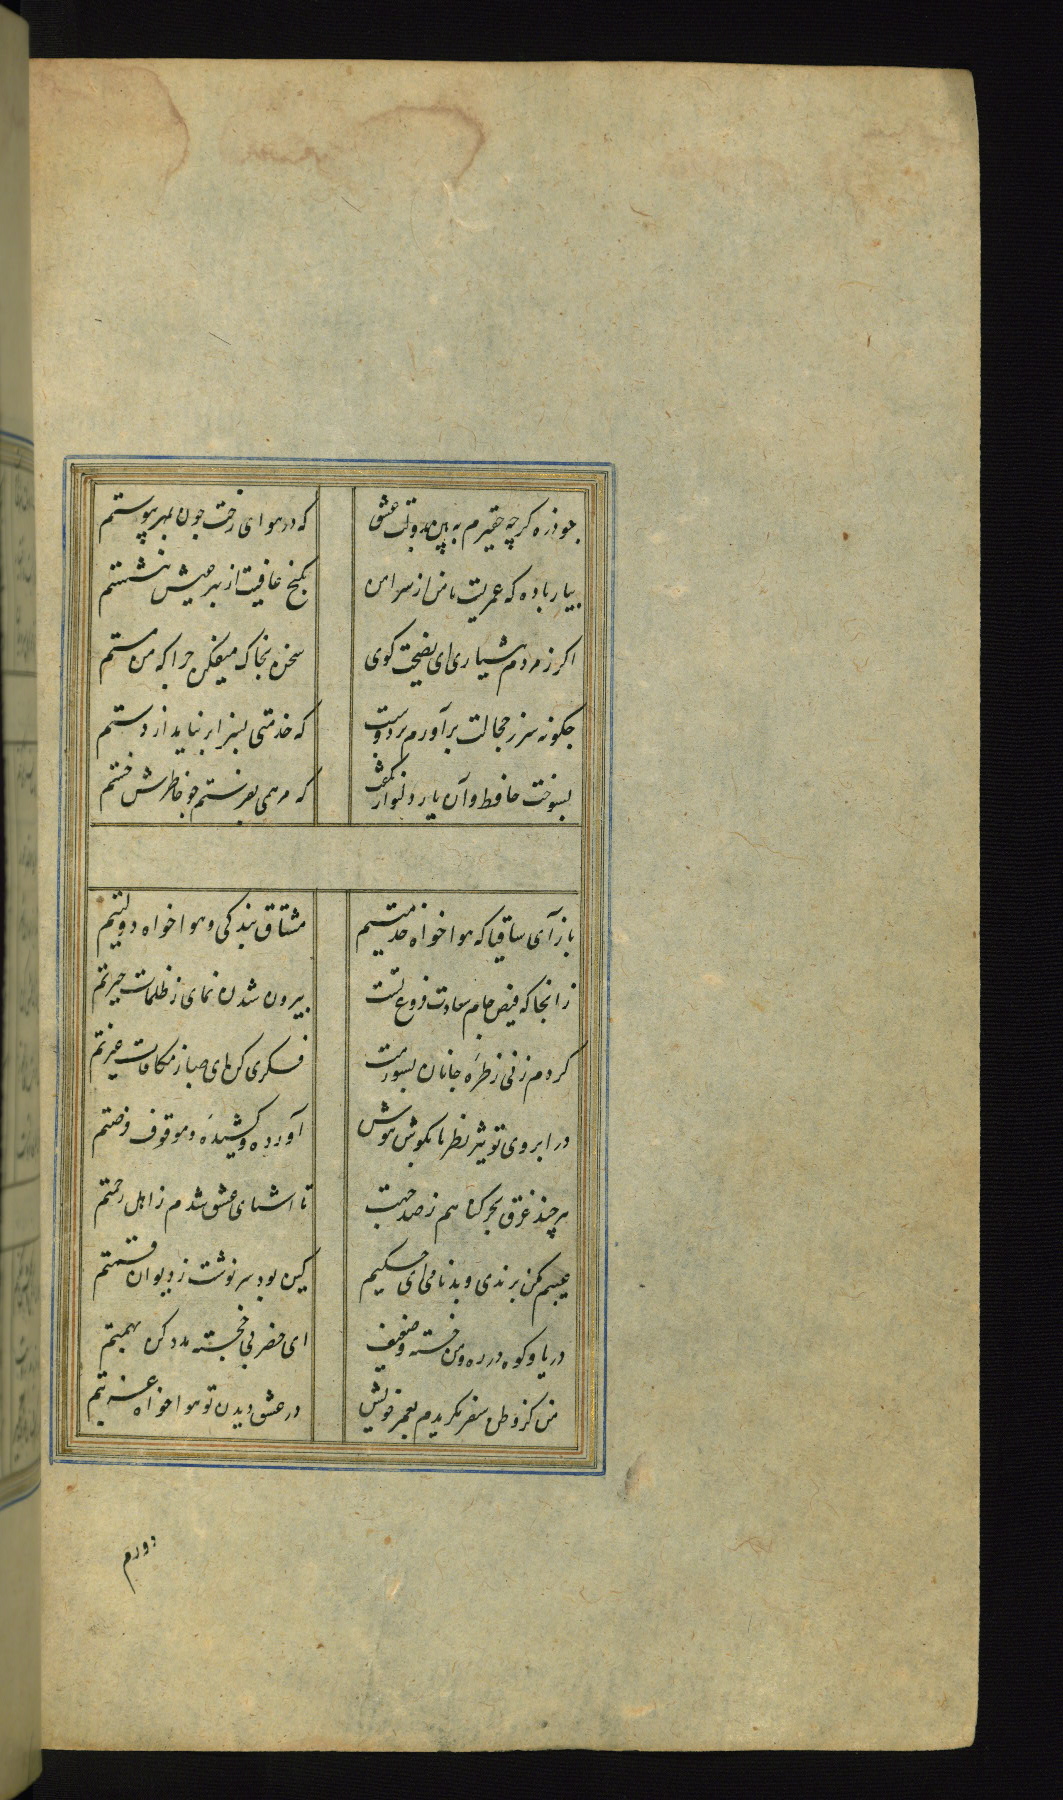 چو ذره گرچه حقیرم به بین بدولت عشق که در هوای رخت چون بمهر پیوستم
بیار باده که عمریست تا من از سر امن بکنج عافیت از بهر عیش ننشستم
اگر ز مردم هشیاری ای نصیحت گوی سخن بخاک میفکن چرا که من مستم
چگونه سر ز خجالت برآورم بر دوست که خدمتی بسزا بر نیاید از دستم
بسوخت حافظ و آن یار دلنواز نگفت که مرهمی بفرستم چو خاطرش خستم
باز آی ساقیا که هوا خواه خدمتیم مشتاق بندگی و هوا خواه دولتیم
زانجا که فیض جام سعادت فروغ تست بیرون شدن نمای ز ظلمات حیرتم
کردم زنی ز طره جانان بسورمت فکری کن ای صبا ز مکافات غیرتم
در ابروی تو تیر نظر تا بگوش هوش آورده و کشیده و موقوف فرصتم
هر چند غرق بحر گناهم ز صد جهت تا اشنای عشق شدم ز اهل رحمتم
عیبم مکن برندی و بدنامی ای حکیم کین بود سرنوشت ز دیوان قسمتم
دریا و کوه در ره و من خسته و ضعیف ای خضر پی خجسته مدد کن بهمتم
من کز وطن سفر نگزیدم بعمر خویش در عشق دیدن تو هوا خواه غربتم
دورم